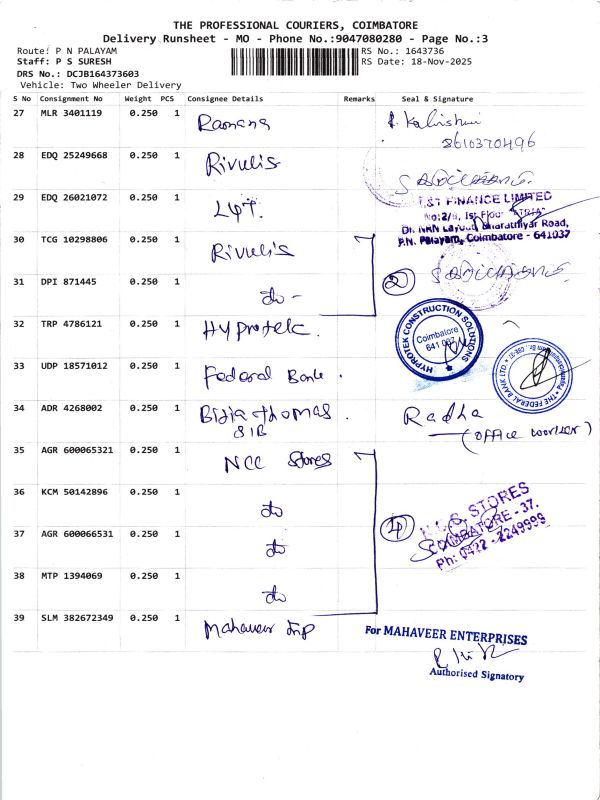 THE PROFESSIONAL COURIERS, COIMBATORE
Delivery Runsheet - MO - Phone No.:9047080280 - Page No.:3
Route: P N PALAYAM
Staff: P S SURESH
DRS No.: DCJB164373603
Vehicle: Two Wheeler Delivery
RS No.: 1643736
RS Date: 18-Nov-2025
S No Consignment No Weight PCS Consignee Details Remarks Seal & Signature
27 MLR 3401119 0.250 1 Ramana
8610370496
28 EDQ 25249668 0.250 1 Rivulis
29 EDQ 26021072 0.250 1 L&T.
L&T FINANCE LIMITED
No:2/6, Ist Floor "ATRIA"
Dr. NRN Layout, Bharathiyar Road,
P.N. Palayam, Coimbatore - 641037
30 TCG 10298806 0.250 1 Rivulis
31 DPI 871445 0.250 1 do -
2
32 TRP 4786121 0.250 1 Hyprotek.
HYPROTEK CONSTRUCTION SOLUTIONS
Coimbatore
641 037
33 UDP 18571012 0.250 1 Federal Bank.
THE FEDERAL BANK LTD.
34 ADR 4268002 0.250 1 Thomas.
SIB
Radha
(office worker)
35 AGR 600065321 0.250 1 NCC Stores
36 KCM 50142896 0.250 1 do
37 AGR 600066531 0.250 1 do
STORES
COIMBATORE - 37.
Ph: 0422 - 2249999
38 MTP 1394069 0.250 1 do
39 SLM 382672349 0.250 1 Mahaveer Enp
For MAHAVEER ENTERPRISES
Authorised Signatory